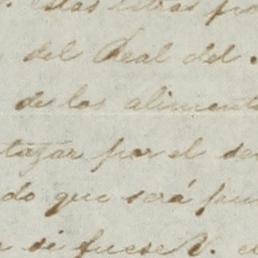 estas letras
del Real del
de los aliment
tazar por el se
do que será
si fuese V. e